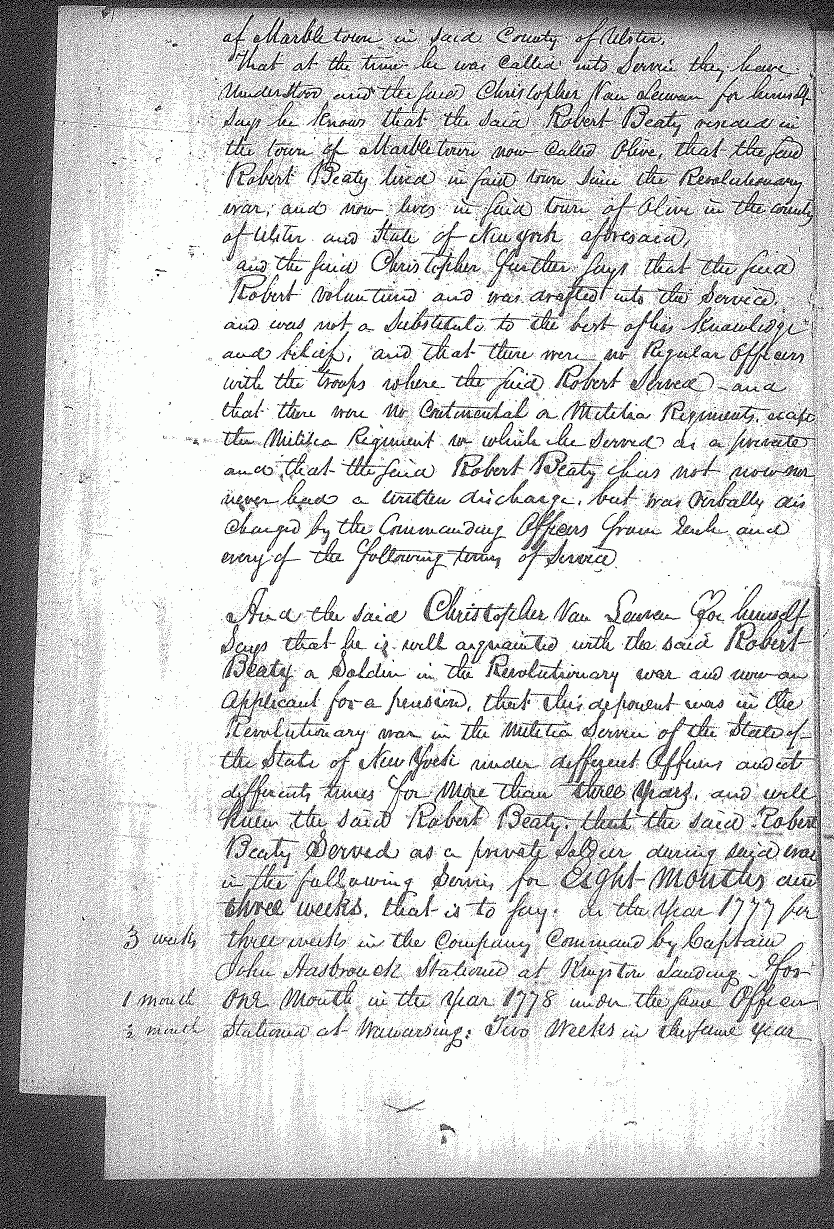 of Marbletown in said County of Ulster,
That at the time he was called into Service they have
understood and the said Christopher Van Leuven for himself
says he knows that the said Robert Beaty resided in
the town of Marbletown now called Olive, that the said
Robert Beaty lived in said town since the Revolutionary
war, and now lives in said town of Olive in the county
of Ulster and State of New York aforesaid,
and the said Christopher further says that the said
Robert volunteered and was drafted into the Service
and was not a Substitute to the best of his Knowledge
and belief, and that there were no Regular Officers
with the troops where the said Robert Served - and
that there were no Continental or Militia Regiments, except
the Militia Regiment in which he Served as a private
and that the said Robert Beaty has not now nor
never had a written discharge, but was verbally dis
charged by the Commanding Officers from each and
every of the following terms of Service
And the said Christopher Van Leuven for himself
Says that he is well acquainted with the said Robert
Beaty a Soldier in the Revolutionary war and now an
Applicant for a pension, that this deponent was in the
Revolutionary war in the Militia Service of the State of
the State of New York under different Officers and at
different times for more than three years, and well
knew the said Robert Beaty, that the said Robert
Beaty Served as a private Soldier during said war
in the following Service for Eight Months and
three weeks, that is to say: in the Year 1777 for
3 weeks three weeks in the Company Command by Captain
John Hasbrouck Stationed at Kingston Landing - for
1 month One Month in the Year 1778 under the same Officer
½ month Stationed at Wawarsing: Two Weeks in the same year